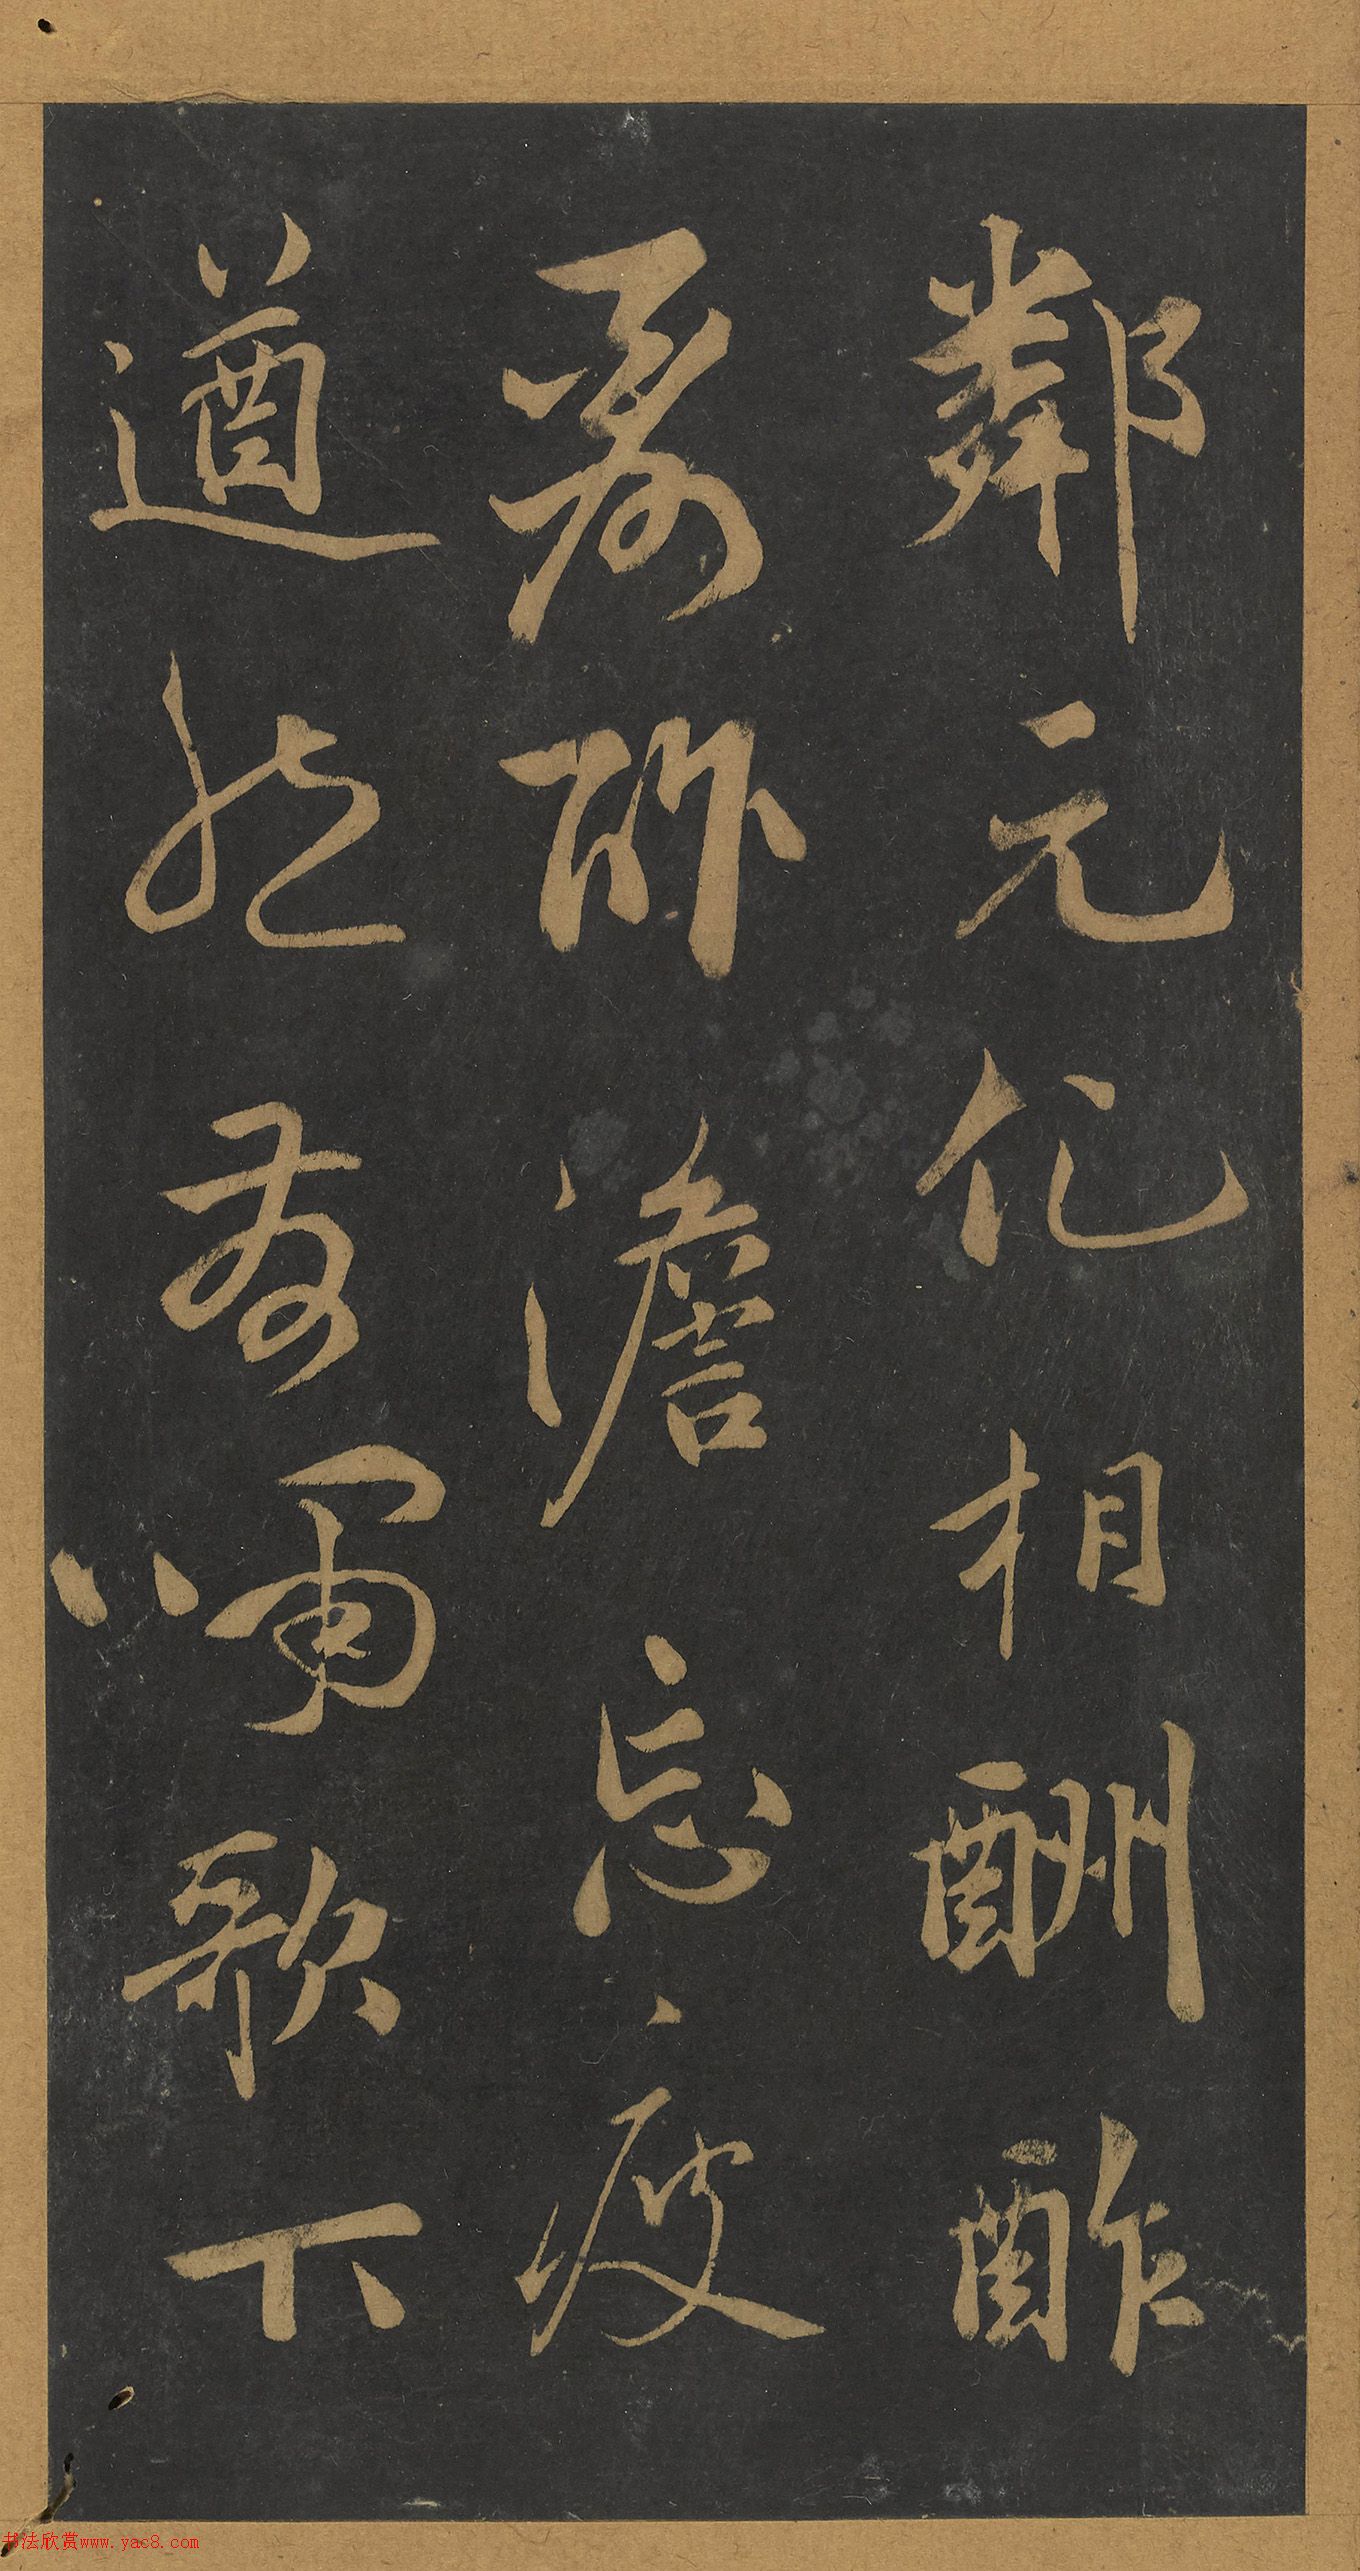 鄰元化相酬酢
所澹忘疲
遒然有嘯歌下
书法欣赏www.yac8.com